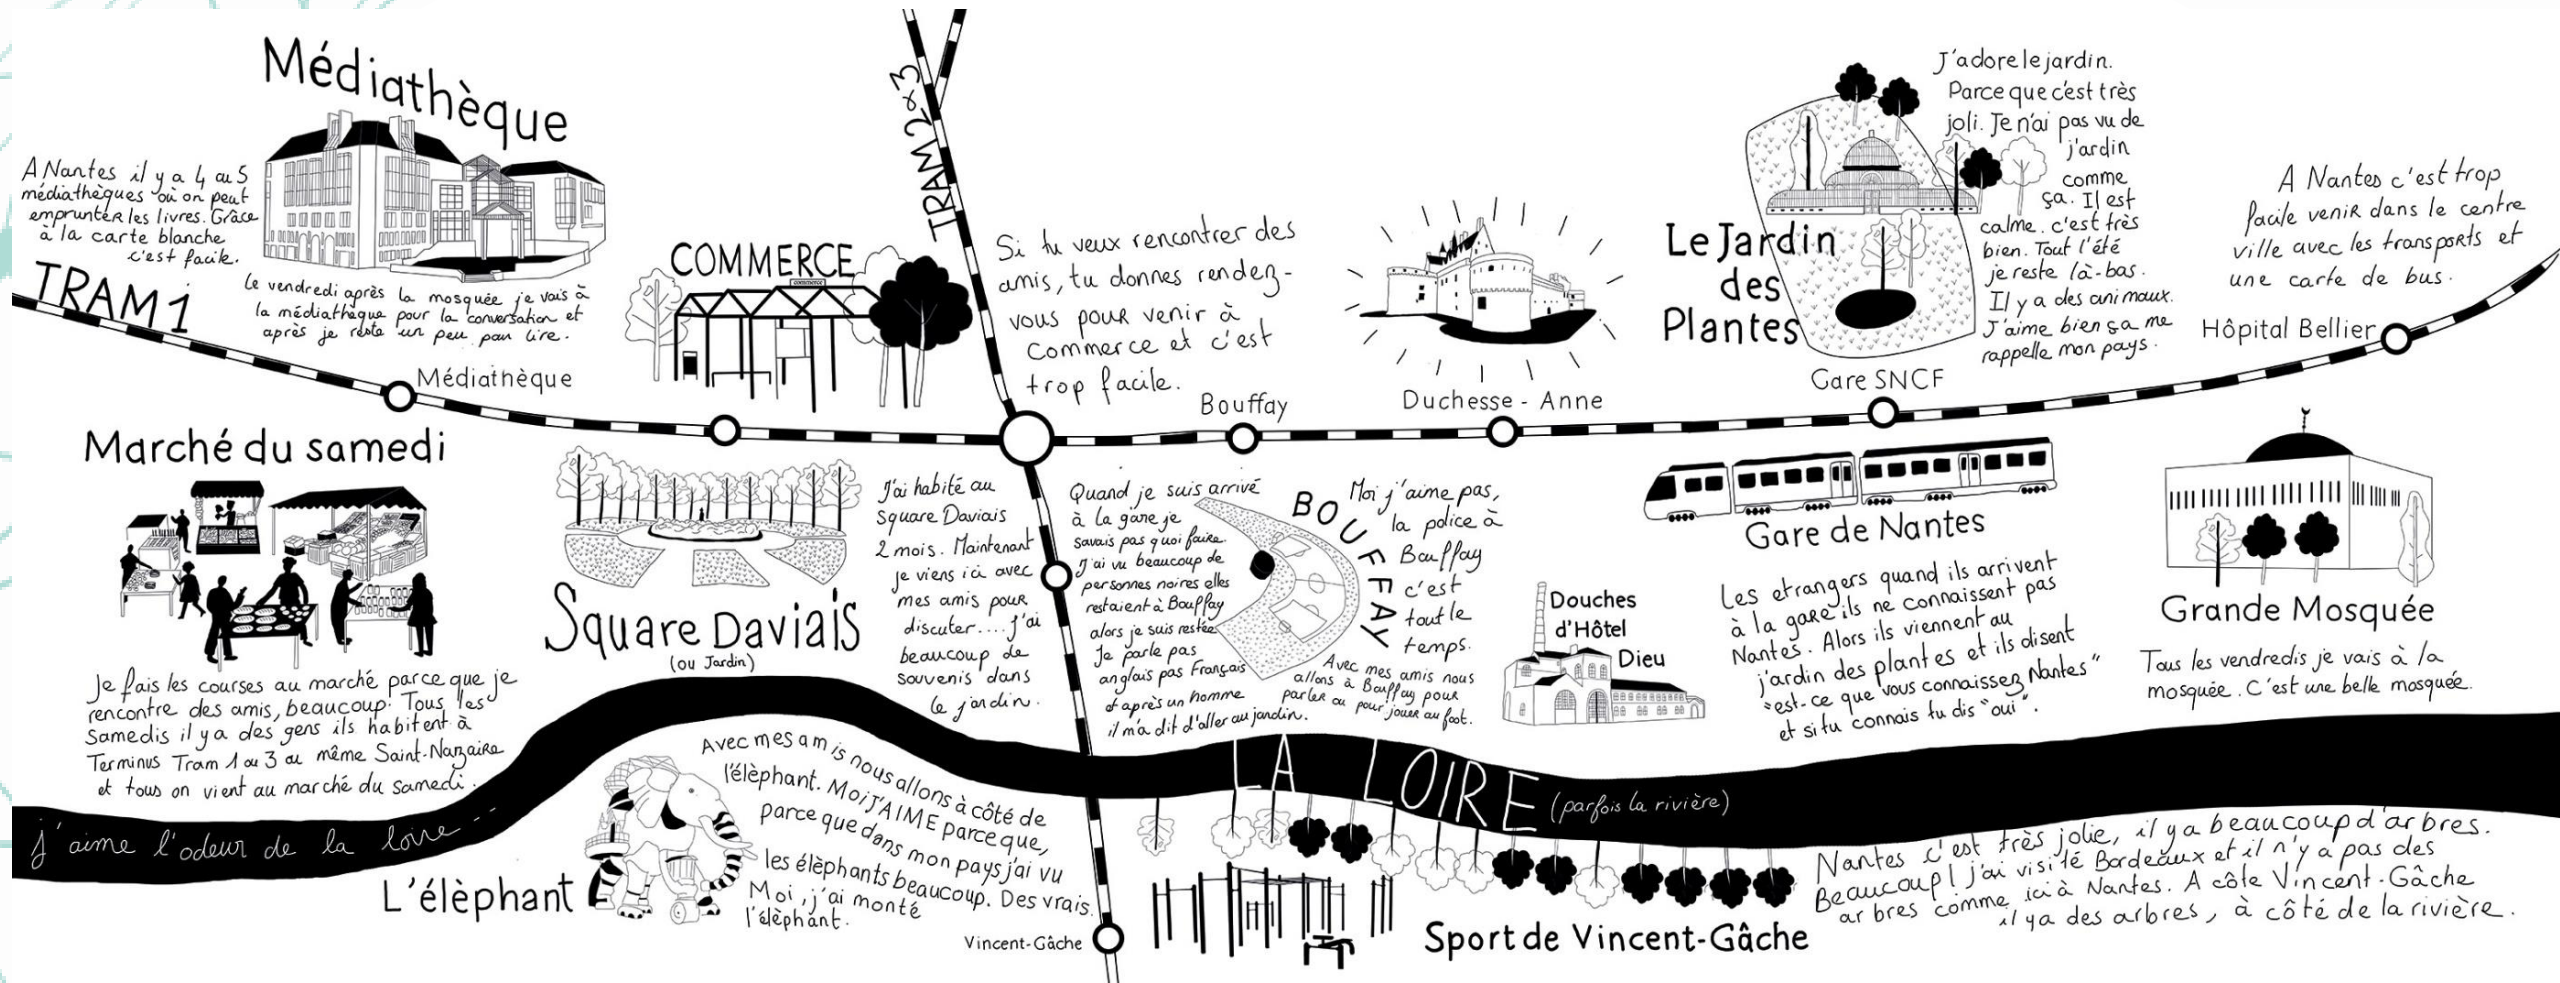 Médiathèque
A Nantes il y a 4 ou 5
médiathèques où on peut
emprunter les livres. Grâce
à la carte blanche
c'est facile.
Le vendredi après la mosquée je vais à
la médiathèque pour la conversation et
après je reste un peu pour lire.
TRAM 1
Médiathèque
COMMERCE
commerce
TRAM 2&3
Si tu veux rencontrer des
amis, tu donnes rendez-
vous pour venir à
Commerce et c'est
trop facile.
Bouffay
Duchesse - Anne
Le Jardin
des
Plantes
J'adore le jardin.
Parce que c'est très
joli. Je n'ai pas vu de
j'ardin
comme
ça. Il est
calme. c'est très
bien. Tout l'été
je reste là-bas.
Il y a des animaux.
J'aime bien ça me
rappelle mon pays.
Gare SNCF
A Nantes c'est trop
facile venir dans le centre
ville avec les transports et
une carte de bus.
Hôpital Bellier
Marché du samedi
Je fais les courses au marché parce que je
rencontre des amis, beaucoup. Tous les
Samedis il y a des gens ils habitent à
Terminus Tram 1 ou 3 ou même Saint-Nazaire
et tous on vient au marché du samedi.
Square Daviais
(ou Jardin)
J'ai habité au
Square Daviais
2 mois. Maintenant
je viens ici avec
mes amis pour
discuter.... j'ai
beaucoup de
souvenis dans
le jardin.
Quand je suis arrivé
à la gare je
savais pas quoi faire.
J'ai vu beaucoup de
personnes noires elles
restaient à Bouffay
alors je suis restée
Je parle pas
anglais pas Français
et après un homme
il m'a dit d'aller au jardin.
BOUFFAY
Moi j'aime pas,
la police à
Bouffay
c'est
tout le
temps.
Avec mes amis nous
allons à Bouffay pour
parler ou pour jouer au foot.
Douches
d'Hôtel
Dieu
Gare de Nantes
Les etrangers quand ils arrivent
à la gare ils ne connaissent pas
Nantes. Alors ils viennent au
j'ardin des plantes et ils disent
"est-ce que vous connaissez Nantes"
et si tu connais tu dis "oui".
Grande Mosquée
Tous les vendredis je vais à la
mosquée. C'est une belle mosquée.
j'aime l'odeur de la loire --
LA LOIRE (parfois la rivière)
L'élèphant
Avec mes amis nous allons à côté de
l'élèphant. Moi J'AIME parce que,
parce que dans mon pays j'ai vu
les élèphants beaucoup. Des vrais.
Moi, j'ai monté
l'élèphant.
Vincent-Gâche
Sport de Vincent-Gâche
Nantes c'est très jolie, il y a beaucoup d'arbres.
Beaucoup! j'ai visité Bordeaux et il n'y a pas des
arbres comme ici à Nantes. A côte Vincent-Gâche
il ya des arbres, à côté de la rivière.